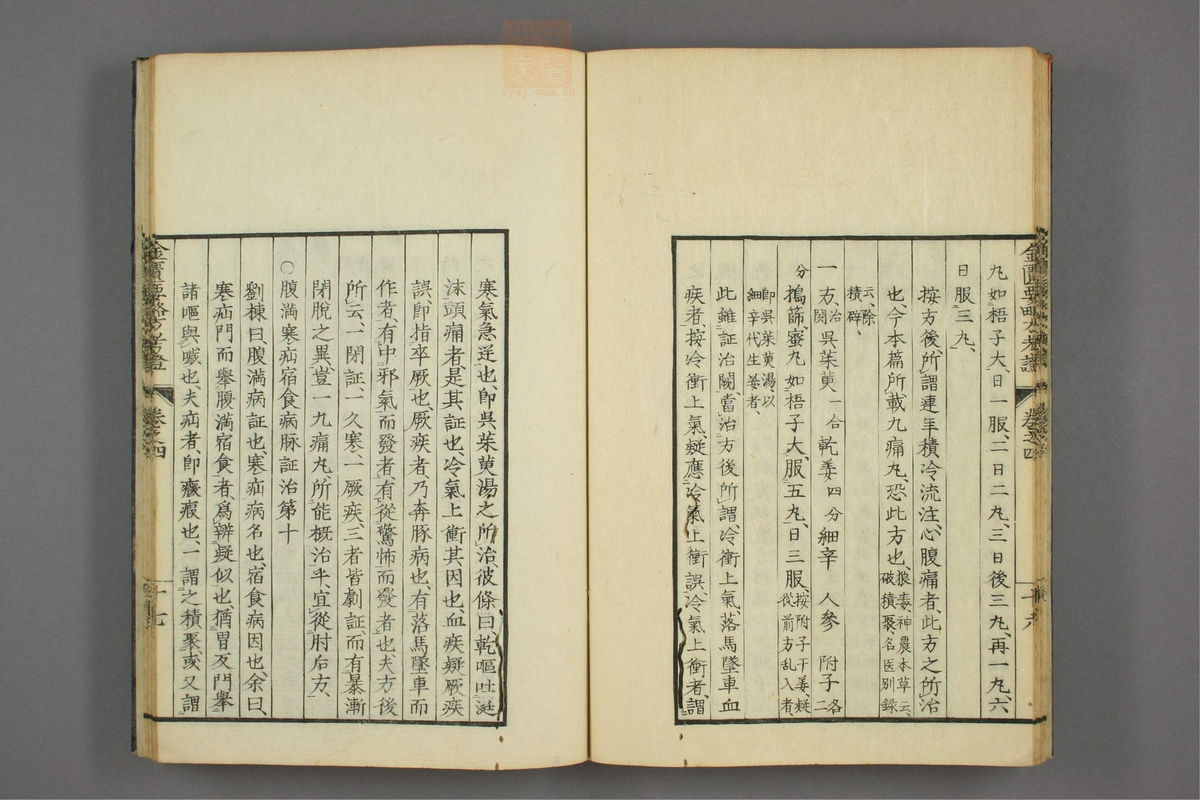 丸如梧子大日一服二日二丸三日後三丸再一丸六
日服三丸、
按方後所謂連年積冷流注心腹痛者、此方之所治
也、今本篇所載九痛丸、恐此方也、狼毒神農本草云、破積聚、名医別録
云、除積癖、
一方、治闕吳茱萸一合乾姜四分細辛 人參 附子各二
分搗篩、蜜丸如梧子大、服五丸、日三服、按附子干姜疑從前方乱入者、
即吳茱萸湯、以細辛代生姜者、
此雖証治闕、當治方後所謂冷衝上氣、落馬墜車血
疾者、按冷衝上氣、疑應冷氣上衝誤、冷氣上衝者、謂
金匱要略方考證 卷之四
寒氣急逆也、即吳茱萸湯之所治彼條曰乾嘔吐涎
沫頭痛者、是其証也、冷氣上衝其因也、血疾疑厥疾
誤、即指卒厥也、厥疾者乃奔豚病也、有落馬墜車而
作者、有中邪氣而發者、有從驚怖而發者也、夫方後
所云、一閉証、一久寒、一厥疾、三者皆劇証而有暴漸
閉脫之異、豈一九痛丸所能概治乎、宜從肘后方、
○腹滿寒疝宿食病脉証治第十
劉棟曰、腹滿病証也、寒疝病名也、宿食病因也、余曰、
寒疝門而舉腹滿宿食者、為辨疑似也、猶胃反門舉
諸嘔與噦也、夫疝者、即癥瘕也、一謂之積聚、或又謂
金匱要略方考證 卷之四 十七